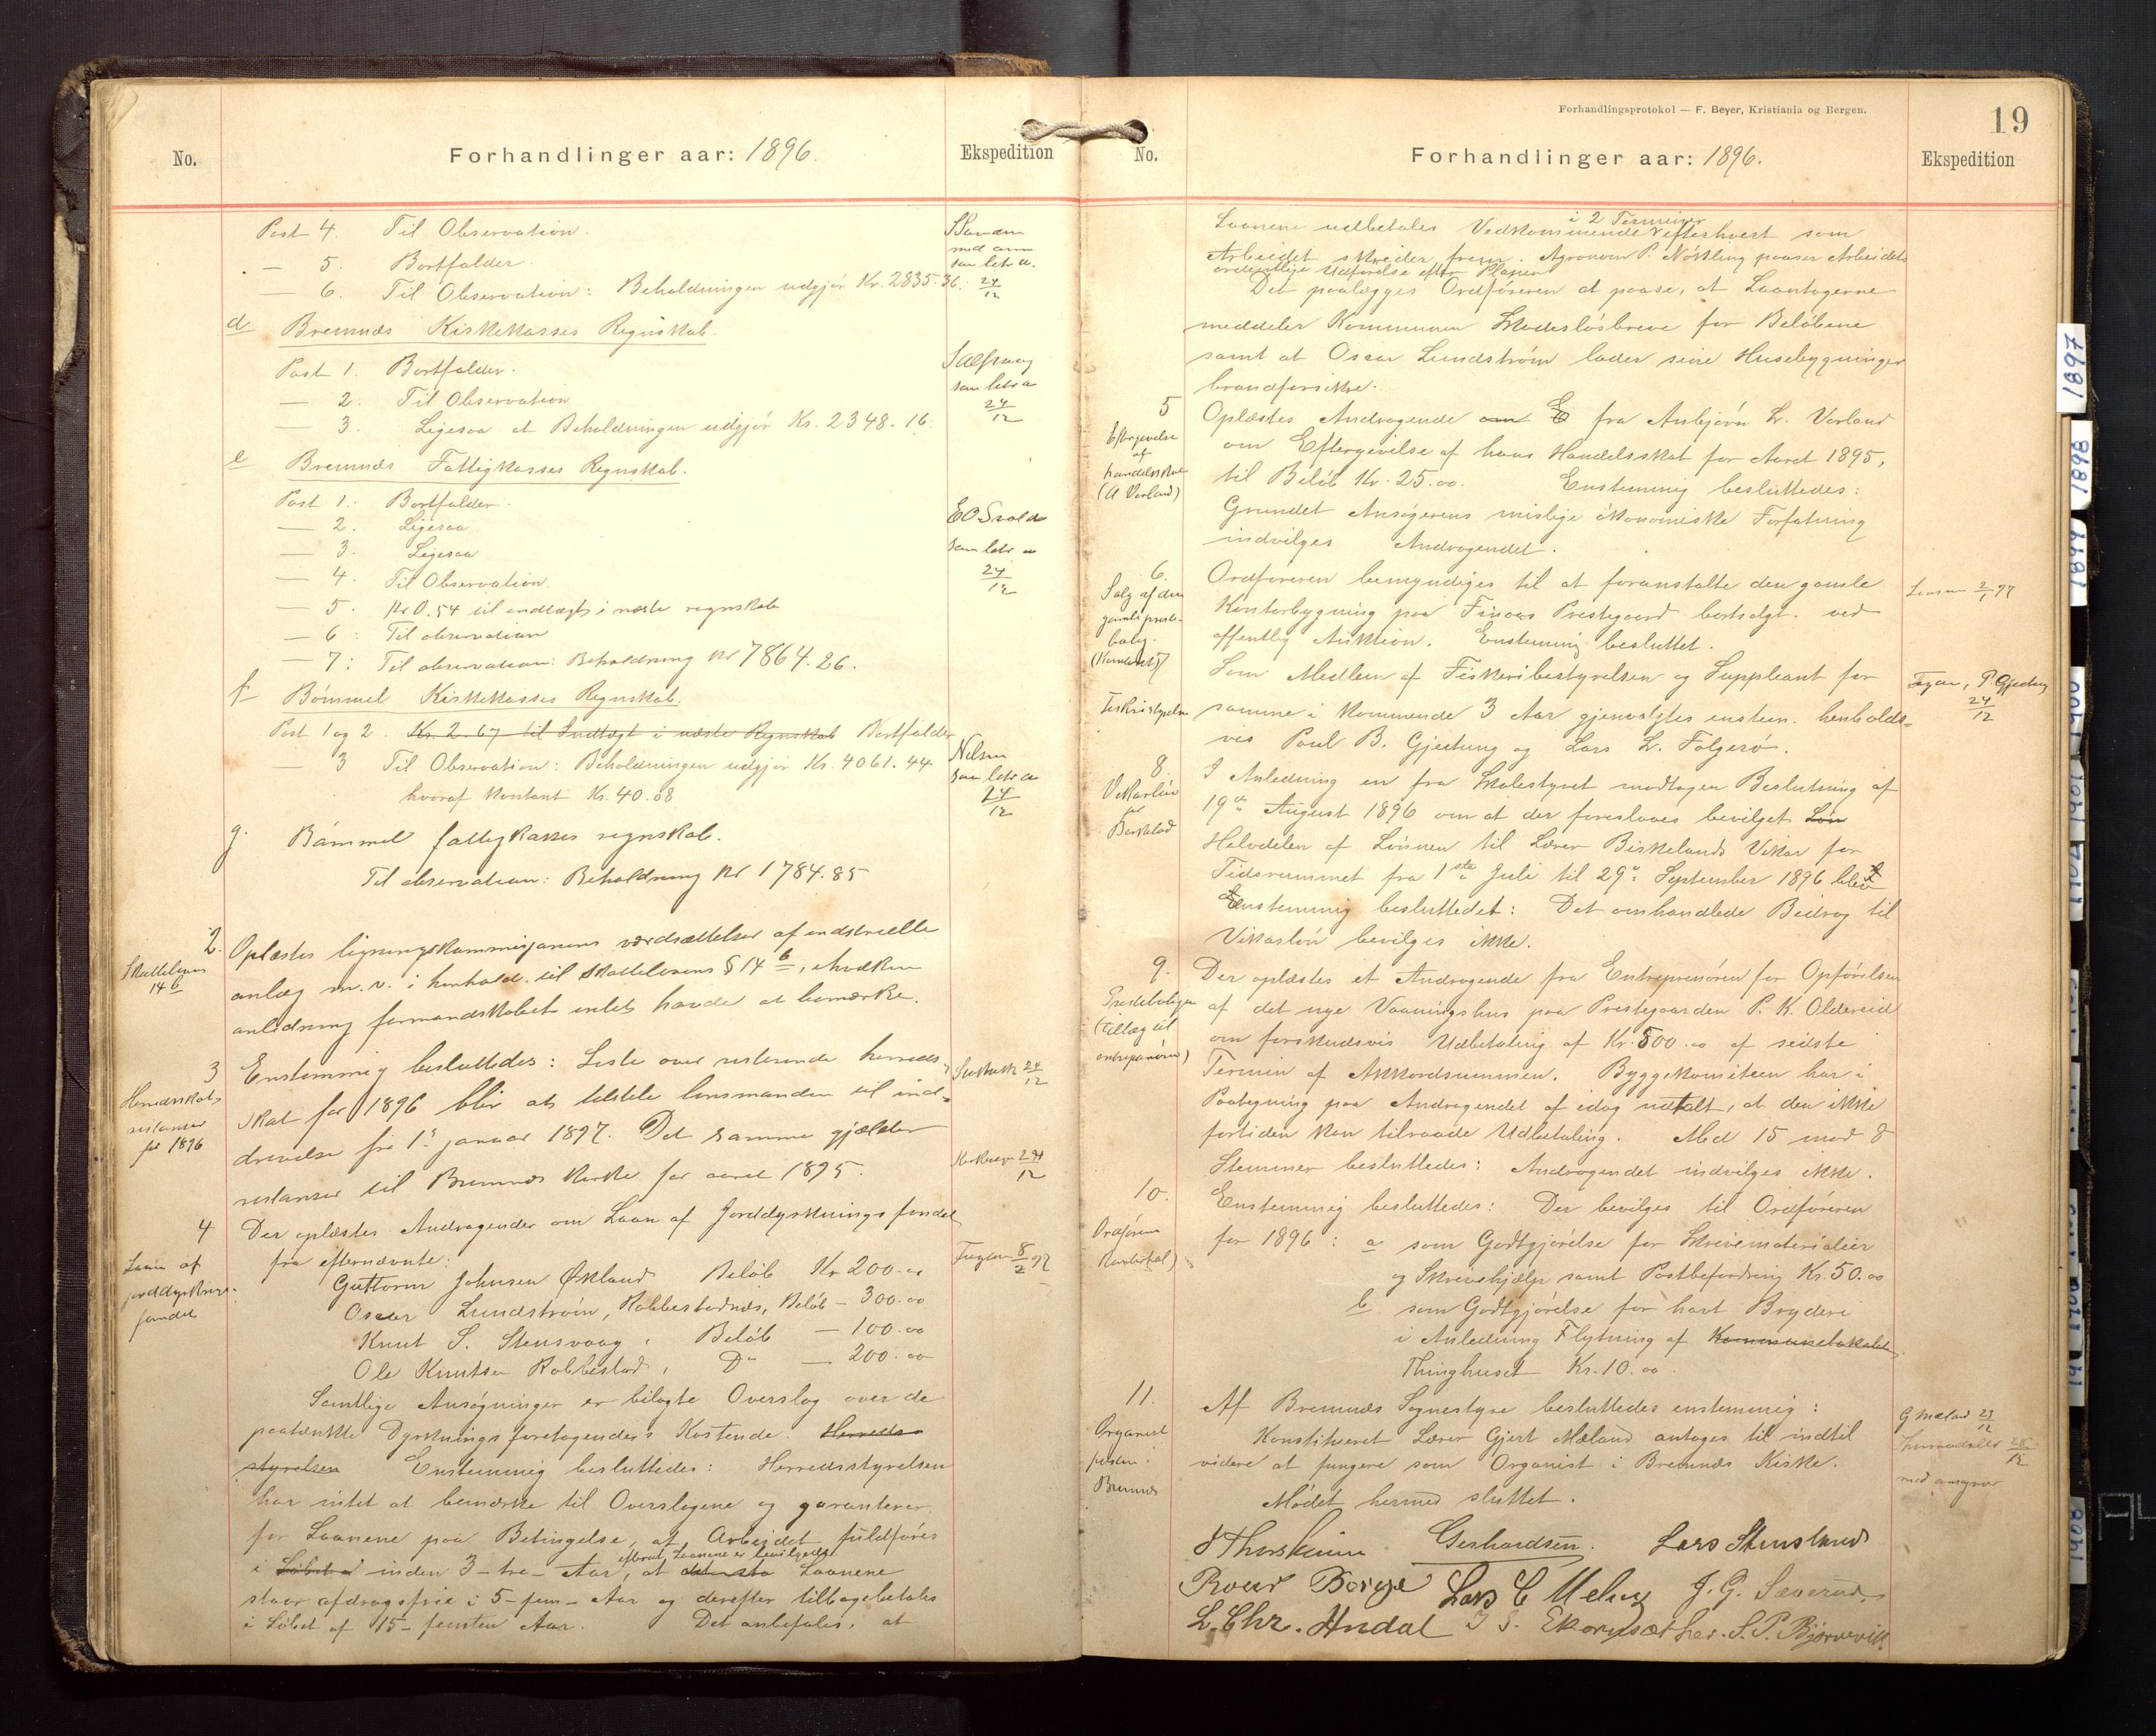 No.
Forhandlinger aar: 1896.
Ekspedition
Post 4. Til Observation.
— 5. Bortfalder.
— 6. Til Observation: Beholdningen udgjør Kr. 2835.36.
med
sam letr a.
24/12
d Bremnæs Kirkekasses Regnskab.
Post 1. Bortfalder.
— 2. Til Observation
— 3. Ligesaa at Beholdningen udgjør Kr. 2348.16.
sam letr a
24/12
e Bremnæs Fattigkasses Regnskab.
Post 1. Bortfalder.
— 2. Ligesaa
— 3. Ligesaa
— 4. Til Observation.
— 5. Kr 0.54 til indtægt i næste regnskab
— 6: Til observation
— 7: Til observation: Beholdning kr 7864.26.
E O Svold
sam letr a
24/12
f Bømmel Kirkekasses Regnskab.
Post 1 og 2. Kr. 2.67 til Indtægt i næste Regnskab Bortfalder
— 3 Til Observation: Beholdningen udgjør Kr. 4061.44
hvoraf kontant Kr. 40.08
Nilsen
sam letr a
24/12
g. Bømmel fattigkasses regnskab.
Til observation: Beholdning kr 1784.85
2.
Skatteloven
14 b
Oplæstes ligningskommisjonens værdsættelser af industrielle
anlæg m.v. i henhold til skattelovens § 14 b, i hvilken
anledning formandskabet intet havde at bemærke.
3
Herredsskat
restanser
for 1896
Enstemmig besluttedes: Liste over resterende herreds-
skat for 1896 blir at tilstille lensmanden til ind-
drivelse fra 1ste januar 1897. Det samme gjælder
restanser til Bremnæs kirke for aaret 1895.
24/12
24/12
4
Laan af
jorddyrknings-
fondet
Der oplæstes Andragender om Laan af Jorddyrkningsfondet
fra efternævnte:
Guttorm Johnsen Økland Beløb Kr 200.00
Oscar Lundstrøm, Robbestadnæs, Beløb — 300.00
Knut S. Stensvaag, Beløb — 100.00
Ole Knutsen Robbestad, Do — 200.00
8/2 97
Samtlige Ansøgninger er bilagte Overslag over de
paatænkte Dyrkningsforetagenders Kostende. Herreds-
styrelsen Enstemmig besluttedes: Herredsstyrelsen
har intet at bemærke til Overslagene og garanterer
for Laanene paa Betingelse, at Arbeidet fuldføres
i Løbet af inden 3 - tre - Aar, efterat Laanene er bevilgede, at Laanene
staar afdragsfrie i 5 - fem - Aar og derefter tilbagebetales
i Løbet af 15 - femten Aar. Det anbefales, at
Forhandlingsprotokol — F. Beyer, Kristiania og Bergen.
19
No.
Forhandlinger aar: 1896.
Ekspedition
Laanene udbetales Vedkommende i 2 Terminer efterhvert som
Arbeidet skrider frem. Agronom P. Nøkling paaser Arbeidets
ordentlige Udførelse efter Planen.
Det paalægges Ordføreren at paase, at Laantagerne
meddeler Kommunen Skadesløsbreve for Beløbene
samt at Oscar Lundstrøm lader sine Husebygninger
brandforsikre.
5
Eftergivelse
af
handelsskat
(A Vorland)
Oplæstes Andragende om E fra Anbjørn L. Vorland
om Eftergivelse af hans Handelsskat for Aaret 1895,
til Beløb Kr. 25.00. Enstemmig besluttedes:
Grundet Ansøgerens mislige økonomiske Forfatning
indvilges Andragendet.
6.
Salg af den
gamle preste-
bolig.
Ordføreren bemyndiges til at foranstalte den gamle
Kontorbygning paa Finaas Prestegaard bortsolgt ved
offentlig Auktion. Enstemmig besluttet.
2/1 97
7
Som Medlem af Fiskeribestyrelsen og Suppleant for
samme i kommende 3 Aar gjenvalgtes enstem. henholds-
vis Poul B. Gjedung og Lars L. Folgerø.
24/12
8.
Vikarløn
for
Berkelad
I Anledning en fra Skolestyret modtagen Beslutning af
19de August 1896 om at der foreslaaes bevilget Løn
Halvdelen af Lønnen til Lærer Birkelands Vikar for
Tidsrummet fra 1ste Juli til 29de September 1896 blev
Enstemmig besluttedet: Det omhandlede Bidrag til
Vikarløn bevilges ikke.
9.
Presteboligen
(tillæg til
entreprenøren)
Der oplæstes et Andragende fra Entreprenøren for Opførelsen
af det nye Vaaningshus paa Prestegaarden P. K. Oldereid
om forskudsvis Udbetaling af Kr. 500.00 af sidste
Termin af Akkordsummen. Byggekomiteen har i
Paategning paa Andragendet af idag udtalt, at den ikke
fortiden kan tilraade Udbetaling. Med 15 mod 8
Stemmer besluttedes: Andragendet indvilges ikke.
10.
Enstemmig besluttedes: Der bevilges til Ordføreren
for 1896: a som Godtgjørelse for Skrivematerialier
og Skrivehjælp samt Postbefordring Kr. 50.00
b som Godtgjørelse for havt Bryderi
i Anledning Flytning af Kommunelokalet
Thinghuset Kr. 10.00.
11.
Organist
Bremnæs
Af Bremnæs Sognestyre besluttedes enstemmig:
Konstitueret Lærer Gjert Mæland antages til indtil
videre at fungere som Organist i Bremnæs Kirke.
Mødet hermed sluttet.
G Mæland 23/12
Gerhardsen. Lars Stensland
Lars C Meling J. G. Sæverud.
L. Chr. Andal S. P. Bjørnevik
1897
1898
1899
1900
1901
1902
1908